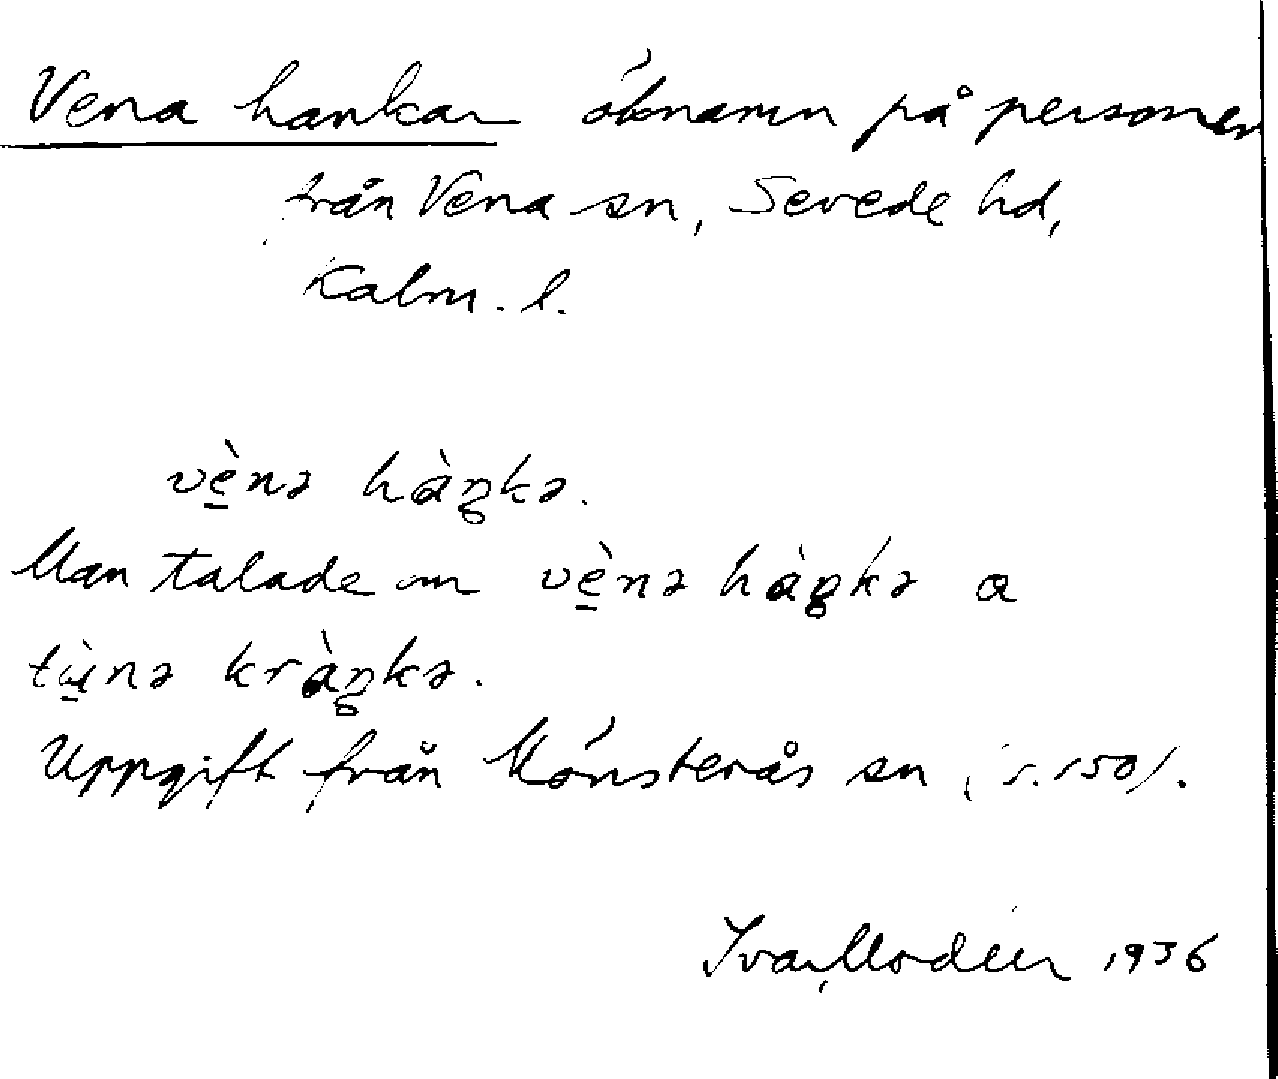 Vena hankar öknamn på personer
från Vena sn, Sevede hd,
Kalm. l.
vè̱nə hàŋkə.
Man talade om vè̱nə hàŋkə a
tù̱nə kràŋkə.
Uppgift från Mönsterås sn
Ivar Modéer 1936